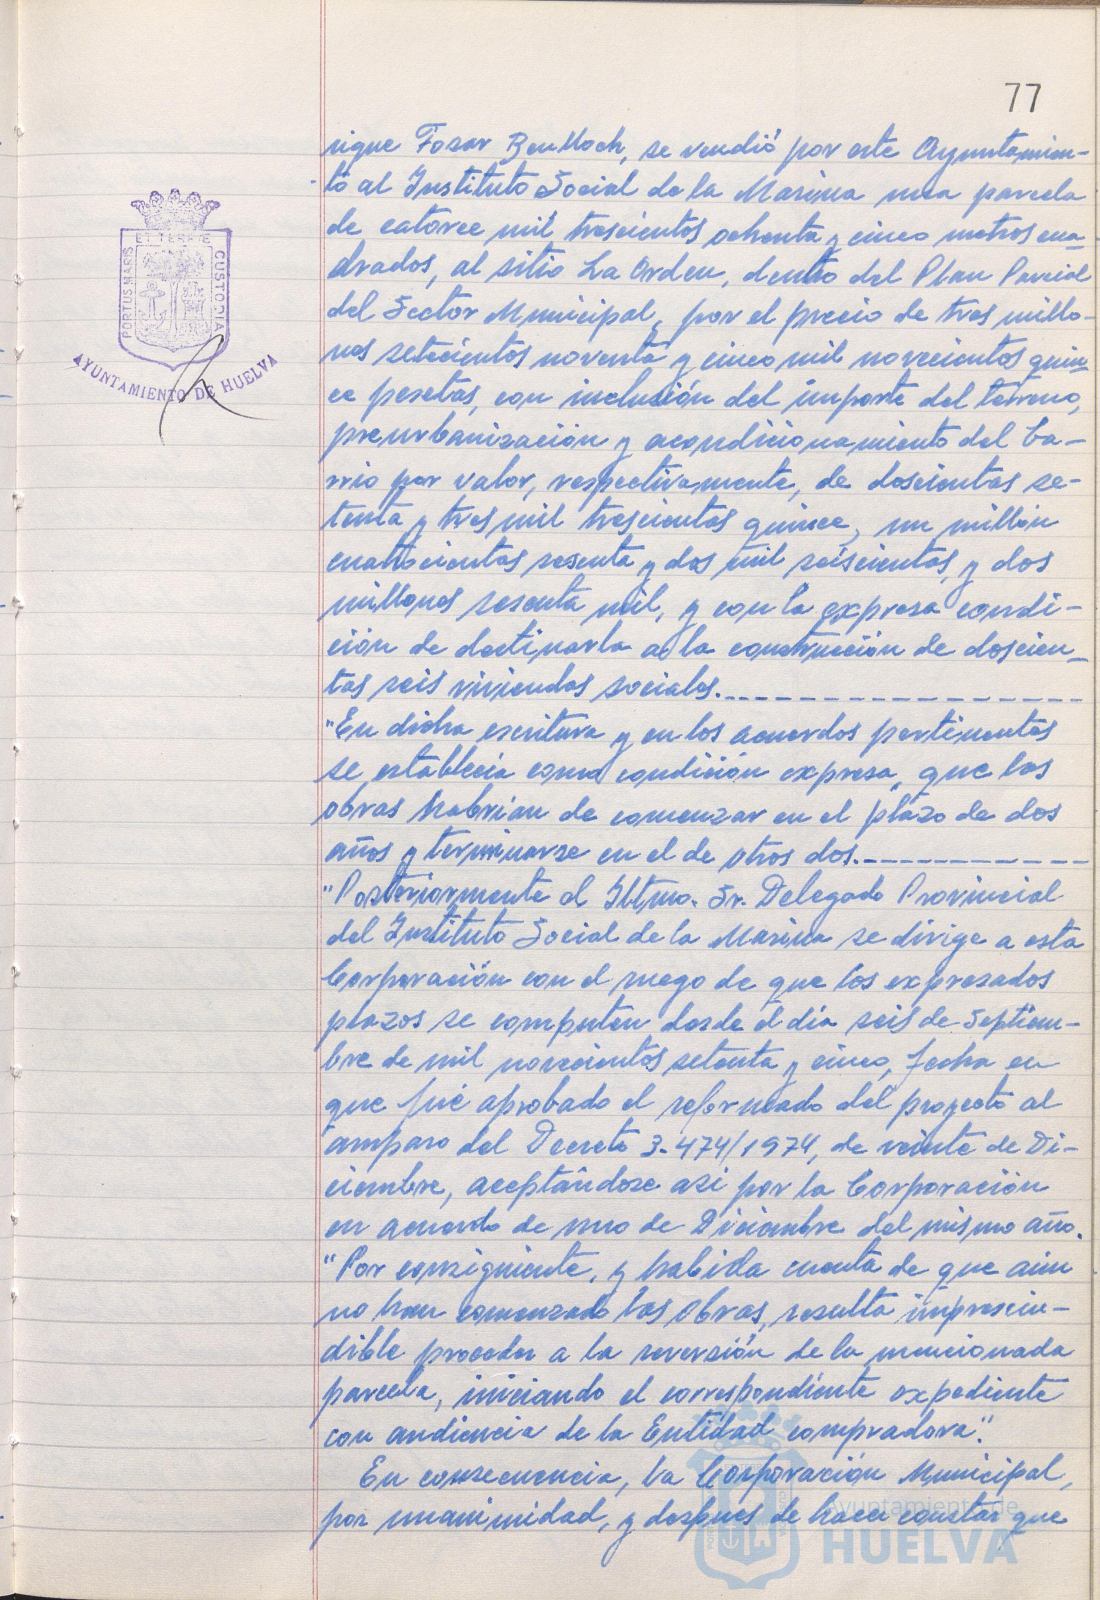 77
rique Fosar Benlloch, se vendió por este Ayuntamien-
to al Instituto Social de la Marina una parcela
de catorce mil trescientos ochenta y cinco metros cua-
drados, al sitio La Orden, dentro del Plan Parcial
del Sector Municipal, por el precio de tres millo-
nes setecientos noventa y cinco mil novecientos quin-
ce pesetas, con inclusión del importe del terreno,
preurbanización y acondicionamiento del ba-
rrio por valor, respectivamente, de doscientas se-
tenta y tres mil trescientas quince, un millón
cuatrocientas sesenta y dos mil seiscientas, y dos
millones sesenta mil, y con la expresa condi-
ción de destinarla a la construcción de doscien-
tas seis viviendas sociales.
"En dicha escritura y en los acuerdos pertinentes
se establecía como condición expresa, que las
obras habrían de comenzar en el plazo de dos
años y terminarse en el de otros dos.
"Posteriormente el Iltmo. Sr. Delegado Provincial
del Instituto Social de la Marina se dirige a esta
Corporación con el ruego de que los expresados
plazos se computen desde el día seis de Septiem-
bre de mil novecientos setenta y cinco, fecha en
que fué aprobado el reformado del proyecto al
amparo del Decreto 3.474/1974, de veinte de Di-
ciembre, aceptándose así por la Corporación
en acuerdo de uno de Diciembre del mismo año.
"Por consiguiente, y habida cuenta de que aún
no han comenzado las obras, resulta imprescin-
dible proceder a la reversión de la mencionada
parcela, iniciando el correspondiente expediente
con audiencia de la Entidad compradora".
En consecuencia, la Corporación Municipal,
por unanimidad, y después de hacer constar que
PORTUS MARIS
ET TERRE
CUSTODIA
AYUNTAMIENTO DE HUELVA
Ayuntamiento de
HUELVA